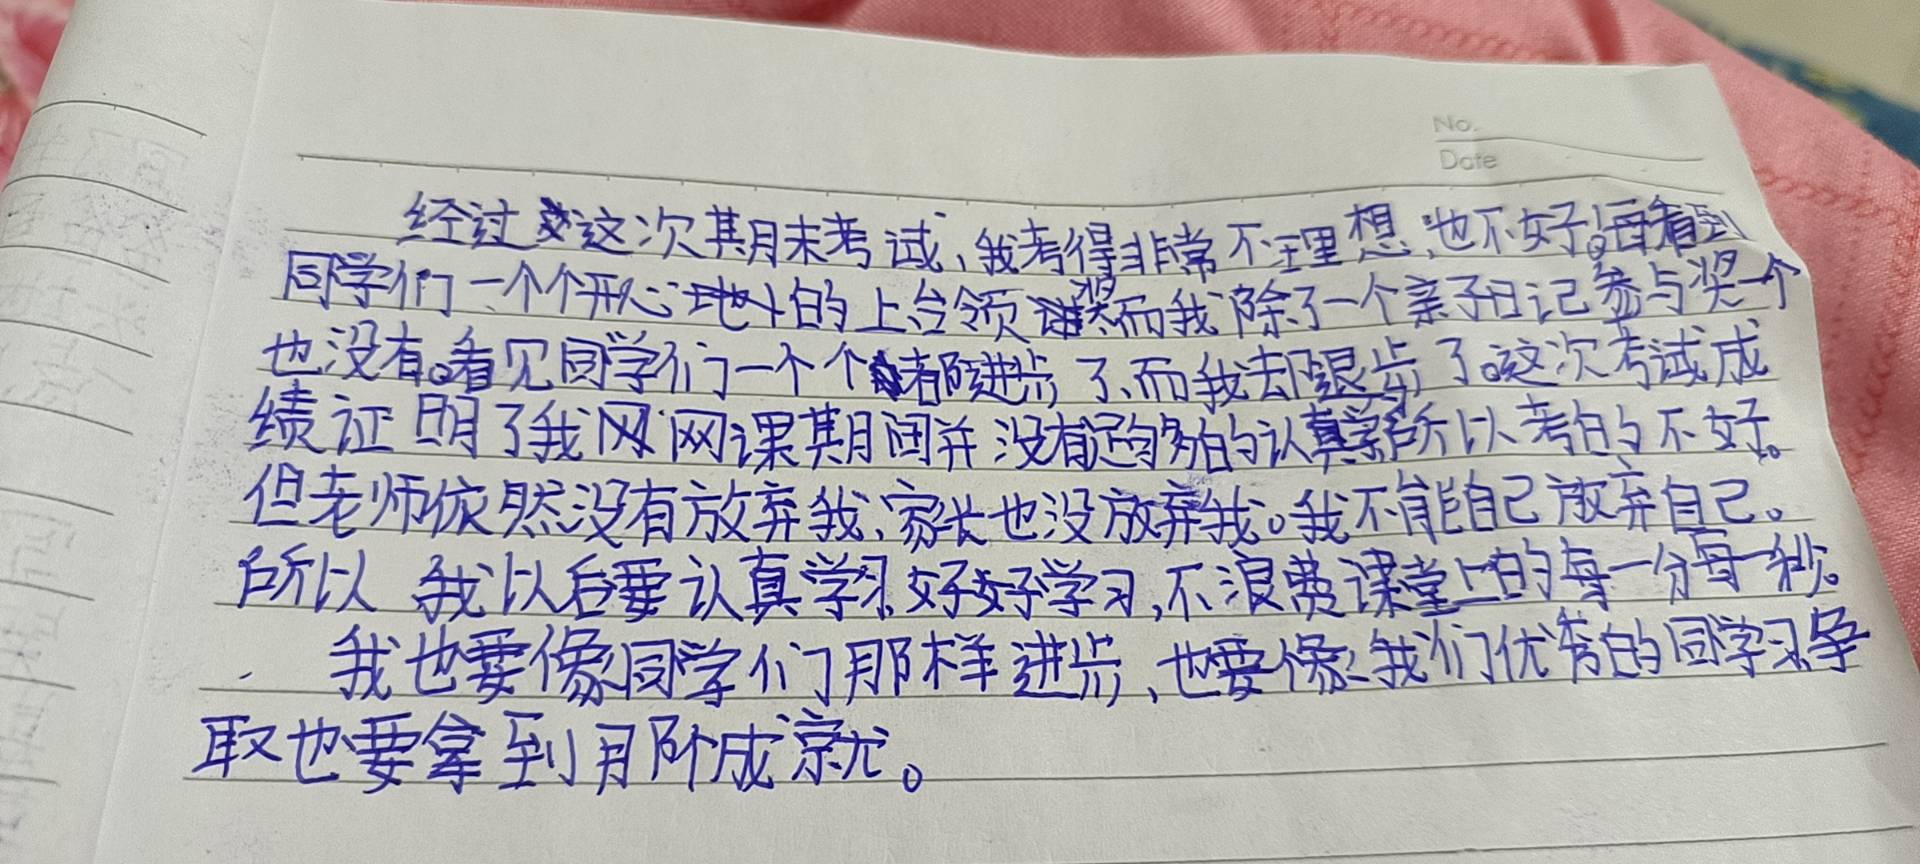 No.
Date
经过这次期末考试,我考得非常不理想,也不好。每看到
同学们一个个开心地的上台领奖而我除了一个亲子日记参与奖一个
也没有。看见同学们一个个都进步了、而我却退步了。这次考试成
绩证明了我网网课期间并没有足够的认真学所以考的不好。
但老师依然没有放弃我、家长也没放弃我。我不能自己放弃自己。
所以我以后要认真学习好好学习,不浪费课堂上的每一分每一秒。
我也要像同学们那样进步、也要像我们优秀的同学习争
取也要拿到月阶成就。